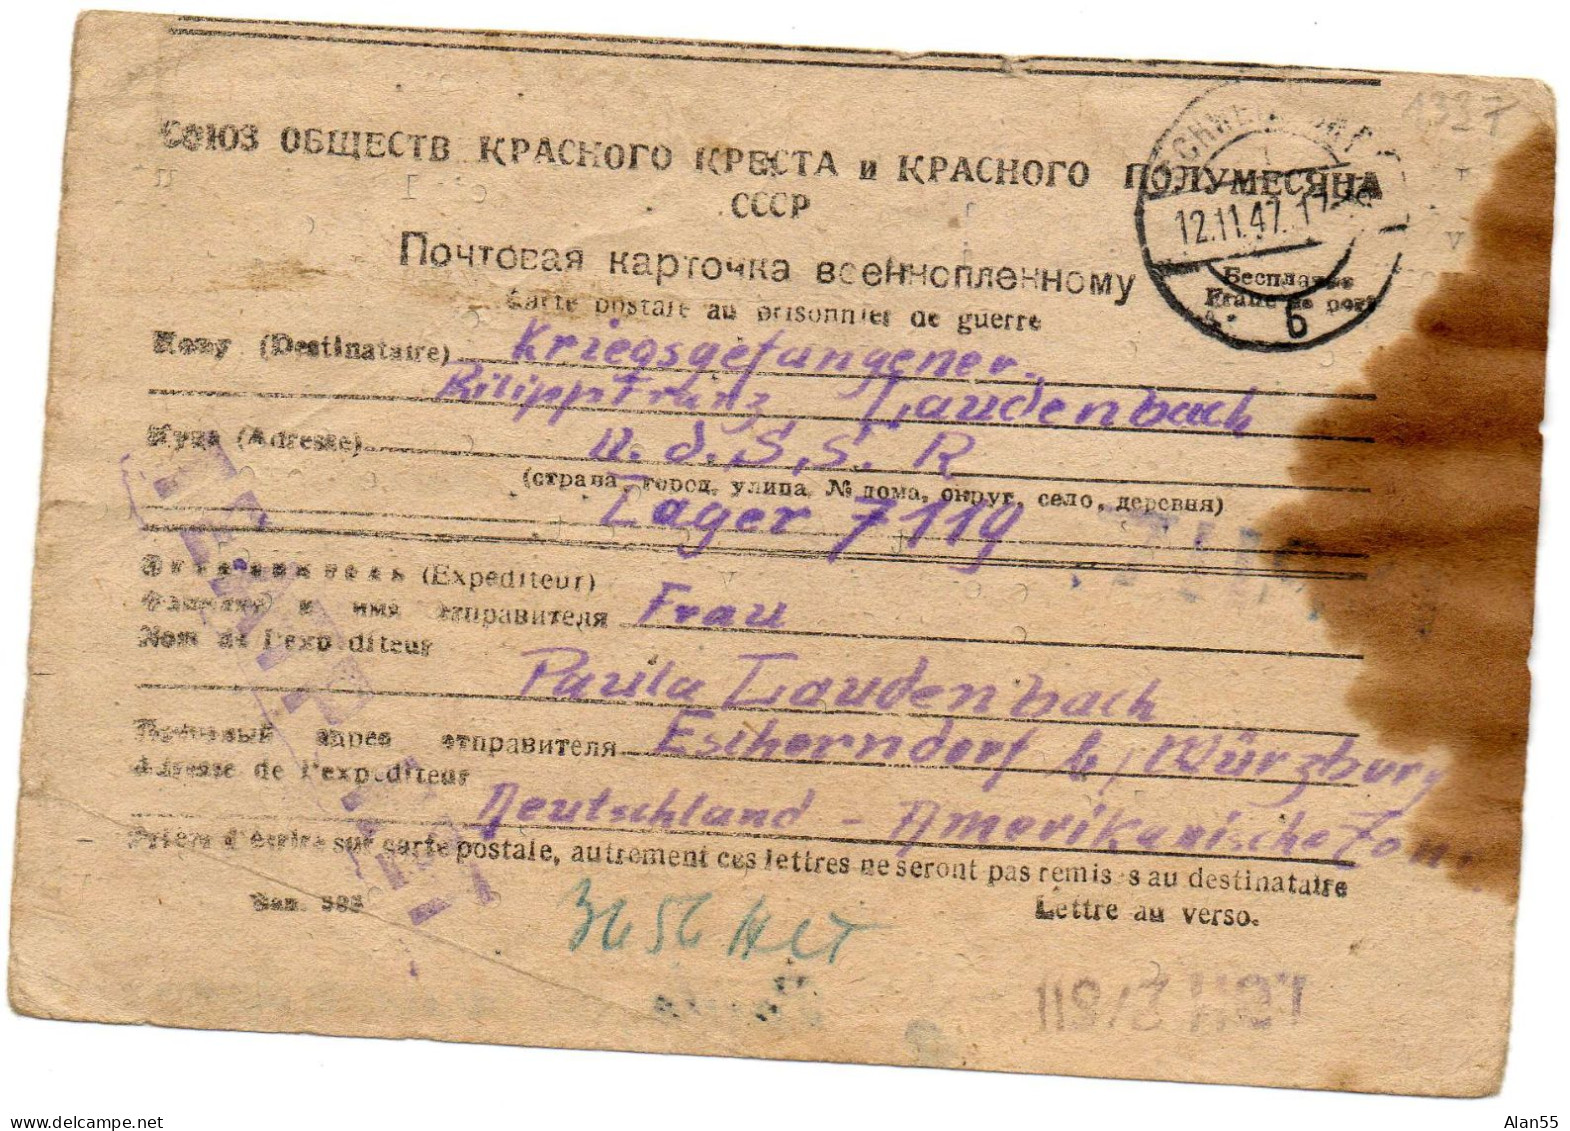 1337
СОЮЗ ОБЩЕСТВ КРАСНОГО КРЕСТА и КРАСНОГО ПОЛУМЕСЯЦА
СССР
12.11.47.17
Почтовая карточка военнопленному
Бесплатно
Carte postale au prisonnier de guerre
Franc de port
б
Кому (Destinataire) Kriegsgefangener.
Franz Laudenbach
Куда (Adresse) U.d.S.S.R
(страна, город, улица, № дома, округ, село, деревня)
Lager 7119
Отправитель (Expéditeur)
Фамилия и имя отправителя Frau
Nom de l'expéditeur
Paula Laudenbach
Почтовый адрес отправителя Escherndorf b/Würzburg
Adresse de l'expéditeur
Deutschland - Amerikanische Zone
Prière d'écrire sur carte postale, autrement ces lettres ne seront pas remises au destinataire
Зак.
Lettre au verso.
Alan55